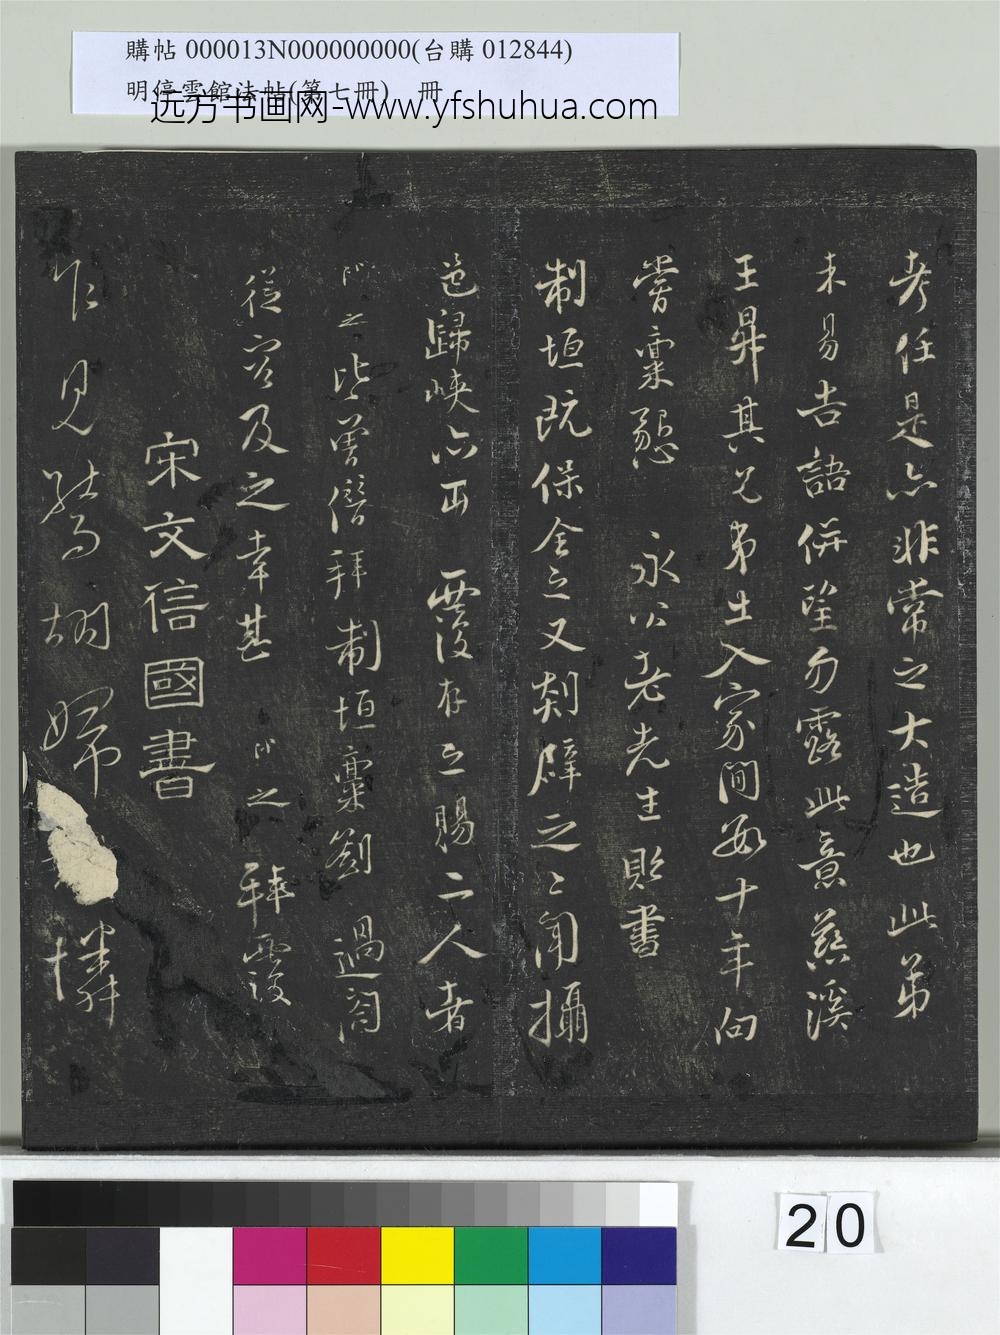 購帖 000013N000000000(台購 012844)
明停雲館法帖(第七冊) 冊
远方书画网-www.yfshuhua.com
考任是亦非常之大造也此弟
未易告語併望勿露此意慈溪
王昇其兄弟生入家間每十年向
嘗稟懇 永公老先生貽書
制垣既保全之又剡辟之之聞攝
邑歸峽亦再 覆存之賜二人者
皆嘗僭拜制垣稟劄 過閤
從容及之幸甚 之拜覆
宋文信國書
乍見 胡婦 憐
20